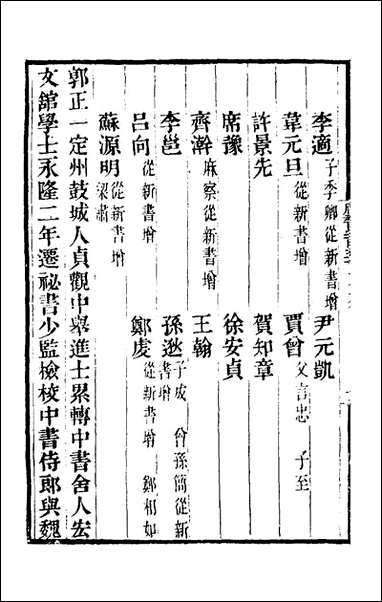 李適子季卿從新書增 尹元凱
韋元旦從新書增 賈曾父言忠 子至
許景先 賀知章
席豫 徐安貞
齊澣麻察從新書增 王翰
李邕 孫逖子成 曾孫簡從新書增
呂向從新書增 鄭虔從新書增 鄭相如
蘇源明從新書增 梁肅
郭正一定州鼓城人貞觀中舉進士累轉中書舍人宏
文舘學士永隆二年遷祕書少監檢校中書侍郎與魏